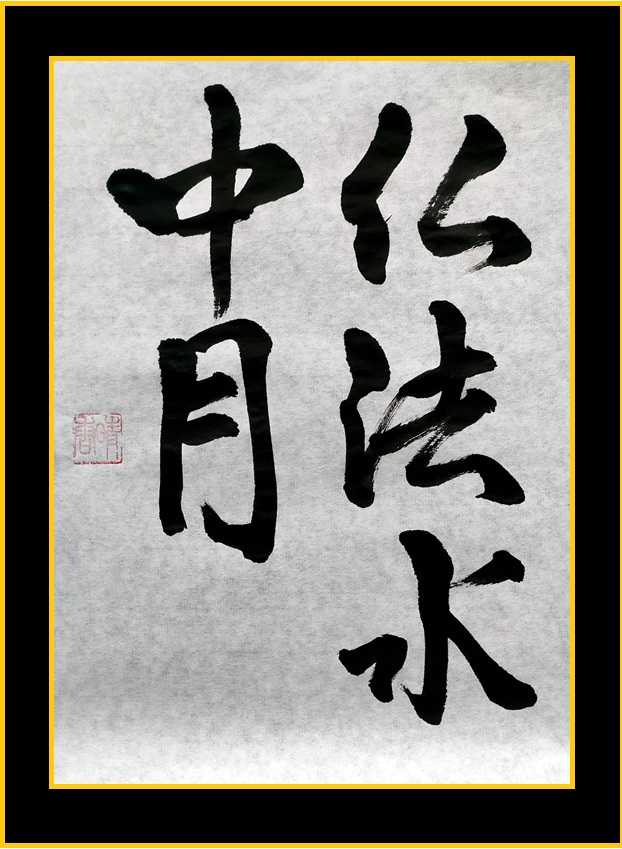 仏法水
中月